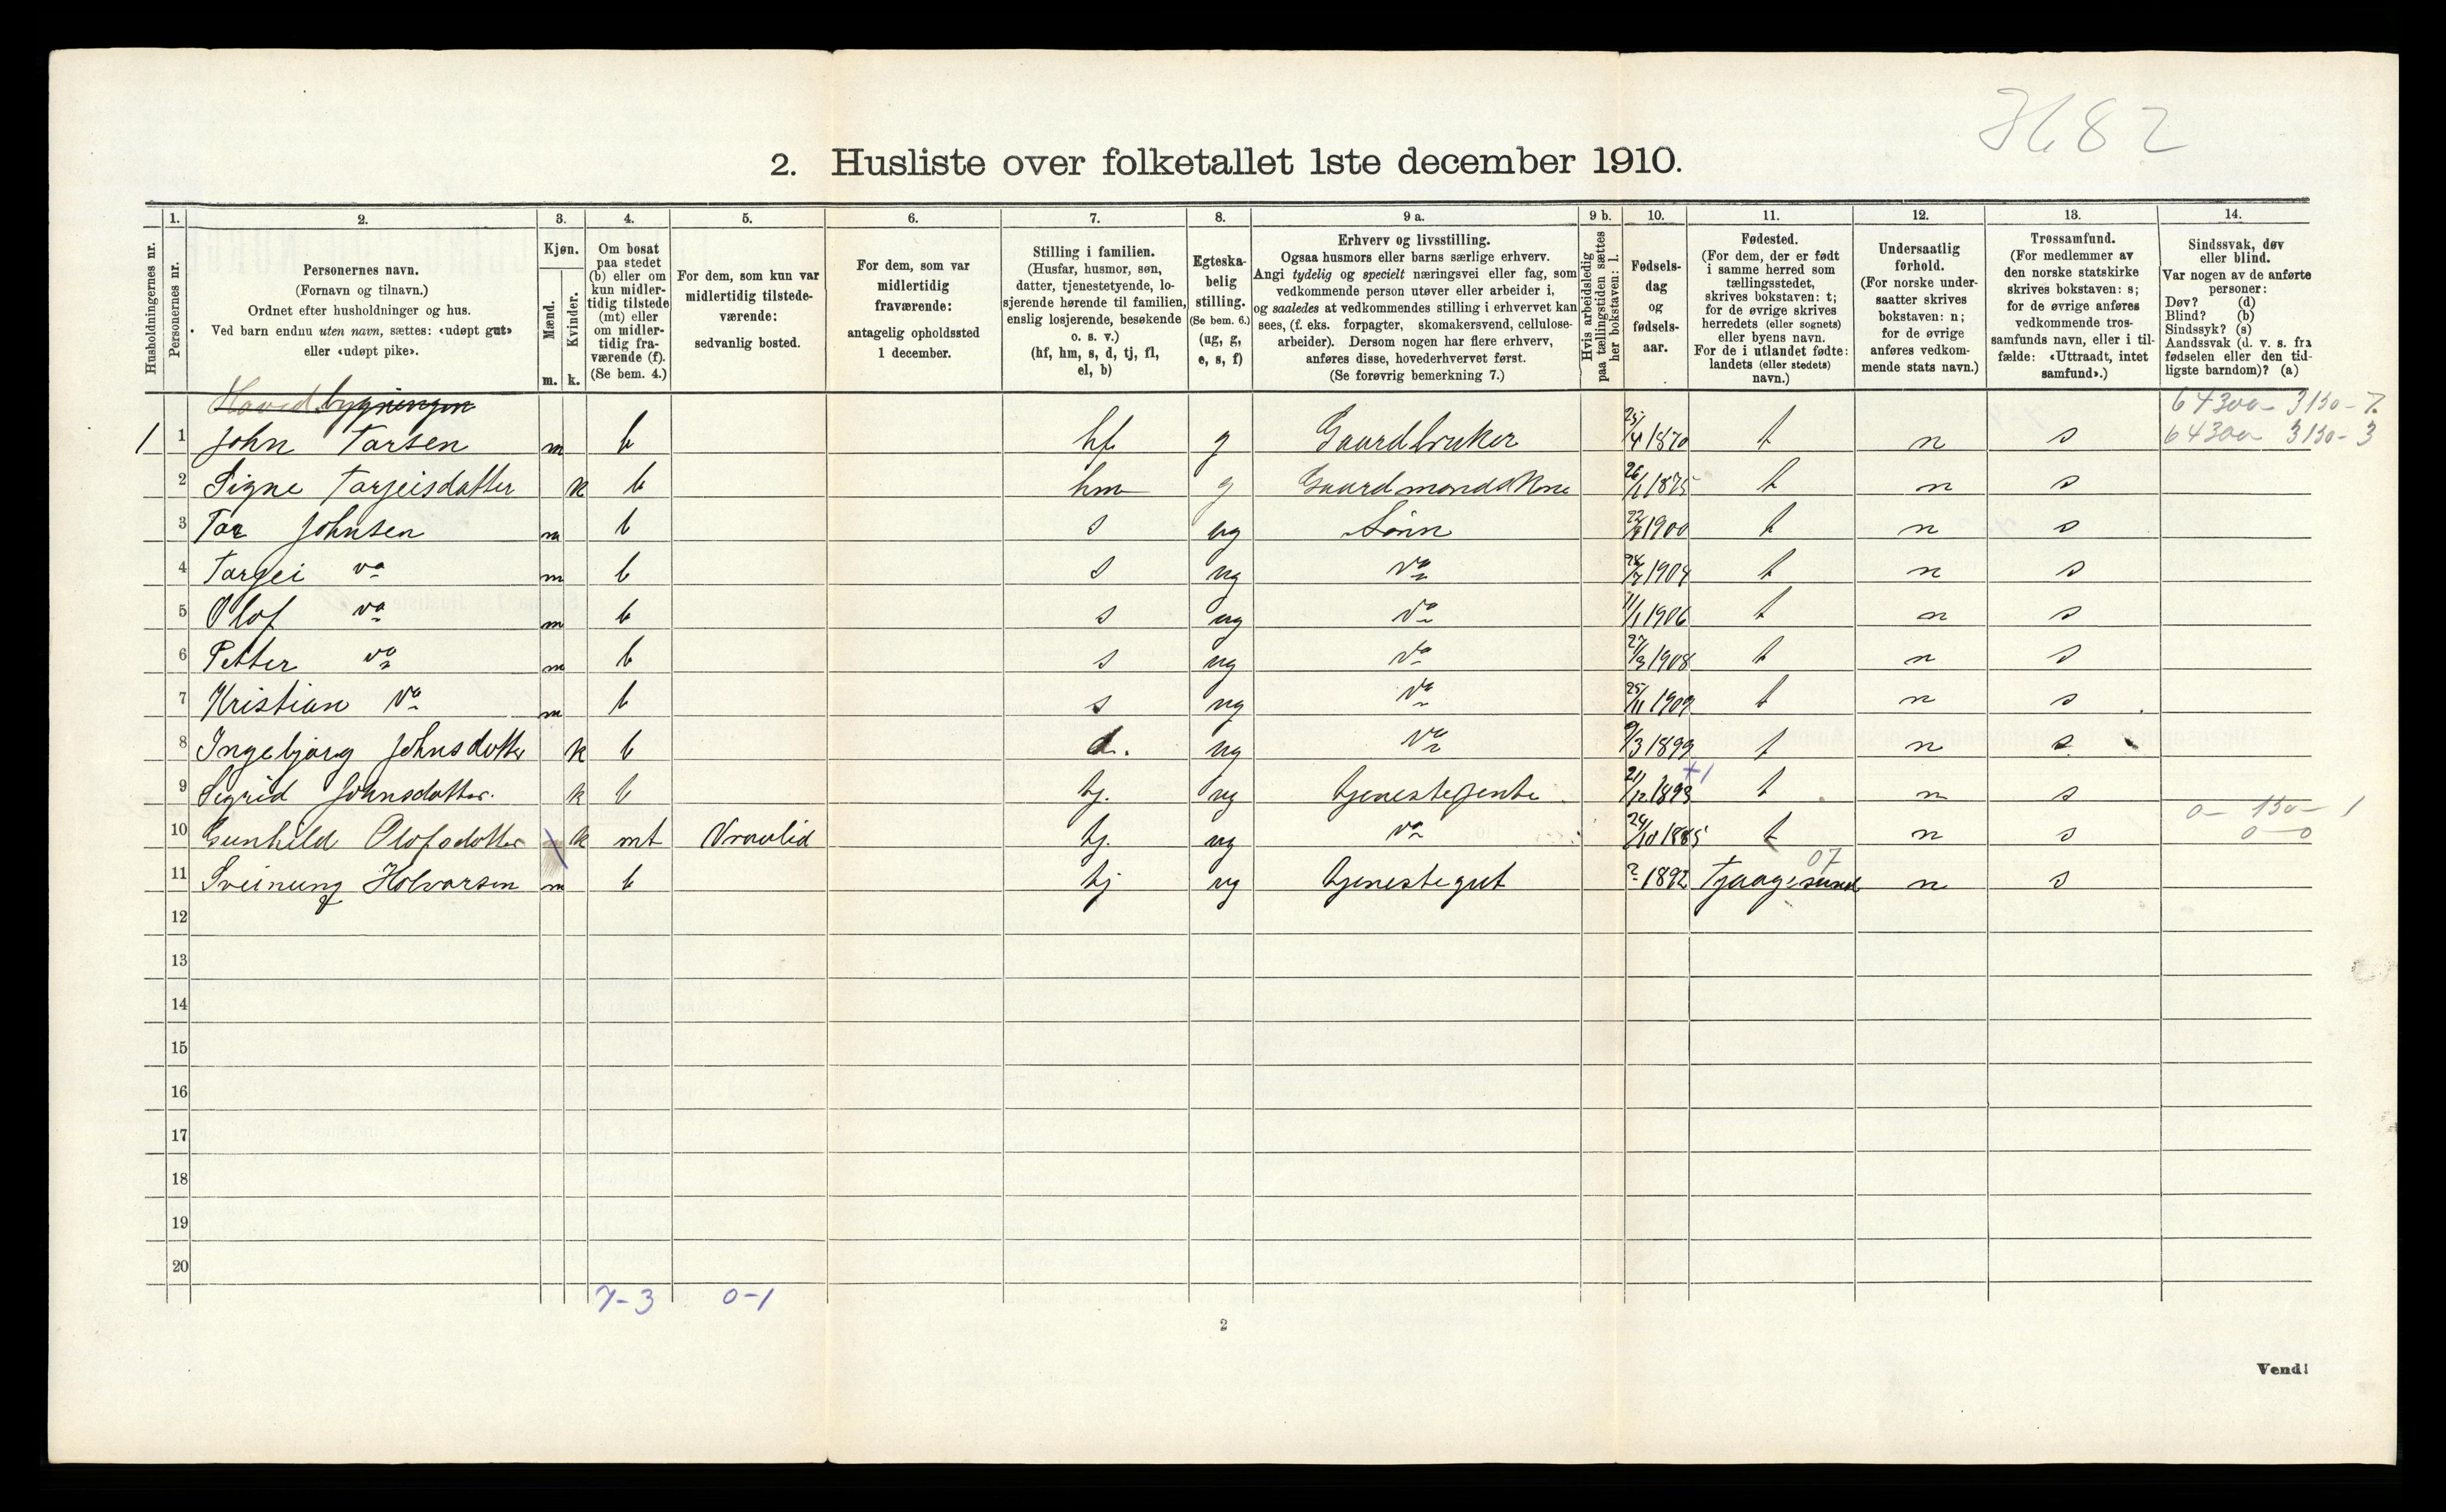 2. Husliste over folketallet 1ste december 1910.
1. 2. 3. 4. 5. 6. 7. 8. 9 a. 9 b. 10. 11. 12. 13. 14.
Husholdningernes nr.
Personernes nr.
Personernes navn.
(Fornavn og tilnavn.)
Ordnet efter husholdninger og hus.
Ved barn endnu uten navn, sættes: «udøpt gut»
eller «udøpt pike».
Kjøn.
Mænd.
Kvinder.
m. k.
Om bosat
paa stedet
(b) eller om
kun midler-
tidig tilstede
(mt) eller
om midler-
tidig fra-
værende (f).
(Se bem. 4.)
For dem, som kun var
midlertidig tilstede-
værende:
sedvanlig bosted.
For dem, som var
midlertidig
fraværende:
antagelig opholdssted
1 december.
Stilling i familien.
(Husfar, husmor, søn,
datter, tjenestetyende, lo-
sjerende hørende til familien,
enslig losjerende, besøkende
o. s. v.)
(hf, hm, s, d, tj, fl,
el, b)
Egteska-
belig
stilling.
(Se bem. 6.)
(ug, g,
e, s, f)
Erhverv og livsstilling.
Ogsaa husmors eller barns særlige erhverv.
Angi tydelig og specielt næringsvei eller fag, som
vedkommende person utøver eller arbeider i,
og saaledes at vedkommendes stilling i erhvervet kan
sees, (f. eks. forpagter, skomakersvend, cellulose-
arbeider). Dersom nogen har flere erhverv,
anføres disse, hovederhvervet først.
(Se forøvrig bemerkning 7.)
Hvis arbeidsledig
paa tællingstiden sættes
her bokstaven: l.
Fødsels-
dag
og
fødsels-
aar.
Fødested.
(For dem, der er født
i samme herred som
tællingsstedet,
skrives bokstaven: t;
for de øvrige skrives
herredets (eller sognets)
eller byens navn.
For de i utlandet fødte:
landets (eller stedets)
navn.)
Undersaatlig
forhold.
(For norske under-
saatter skrives
bokstaven: n;
for de øvrige
anføres vedkom-
mende stats navn.)
Trossamfund.
(For medlemmer av
den norske statskirke
skrives bokstaven: s;
for de øvrige anføres
vedkommende tros-
samfunds navn, eller i til-
fælde: «Uttraadt, intet
samfund».)
Sindssvak, døv
eller blind.
Var nogen av de anførte
personer:
Døv? (d)
Blind? (b)
Sindssyk? (s)
Aandssvak (d. v. s. fra
fødselen eller den tid-
ligste barndom)? (a)
Hovedbygningen
1 1 John Tarsen m b hf g Gaardbruker 25/4 1870 t n s
2 Signe Tarjeisdatter k b hm g Gaardmandskone 26/1 1875 t n s
3 Tar Johnsen m b s ug Sönn 1900 t n s
4 Targei do m b s ug do 1904 t n s
5 Olof do m b s ug do 11/1 1906 t n s
6 Petter do m b s ug do 27/3 1908 t n s
7 Kristian do m b s ug do 25/11 1909 t n s
8 Ingebjørg Johnsdotter k b d. ug do 9/3 1899 t n s
9 Sigrid Johnsdotter. k b tj. ug tjenestejente 21/12 1893 t n s
10 Gunhild Olofsdotter k mt Vraalid tj. ug do 24/10 1885 t n s
11 Sveinung Holvarsen m b tj ug tjenestegut ? 1892 n s
12
13
14
15
16
17
18
19
20
7-3 0-1
2
Vend!